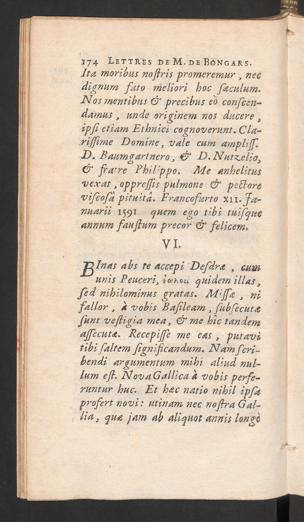 174 LETTRES DE M. DE BONGARS.
Ita moribus nostris promeremur, nec
dignum fato meliori hoc sæculum.
Nos mentibus & precibus eò conscen-
damus, unde originem nos ducere,
ipsi etiam Ethnici cognoverunt. Cla-
rissime Domine, vale cum ampliss.
D. Baumgartnero, & D. Nutzelio,
& fratre Philippo. Me anhelitus
vexat, oppressis pulmone & pectore
viscosâ pituitâ. Francofurto XII. Ja-
nuarii 1591 quem ego tibi tuisque
annum faustum precor & felicem.
VI.
BInas abs te accepi Desdræ, cum
unis Peuceri, quidem illas,
sed nihilominus gratas. Missæ, ni
fallor, à vobis Basileam, subsecutæ
sunt vestigia mea, & me hic tandem
assecutæ. Recepisse me eas, putavi
tibi saltem significandum. Nam scri-
bendi argumentum mihi aliud nul-
lum est. Nova Gallica à vobis perfe-
runtur huc. Et hæc natio nihil ipsa
profert novi: utinam nec nostra Gal-
lia, quæ jam ab aliquot annis longè